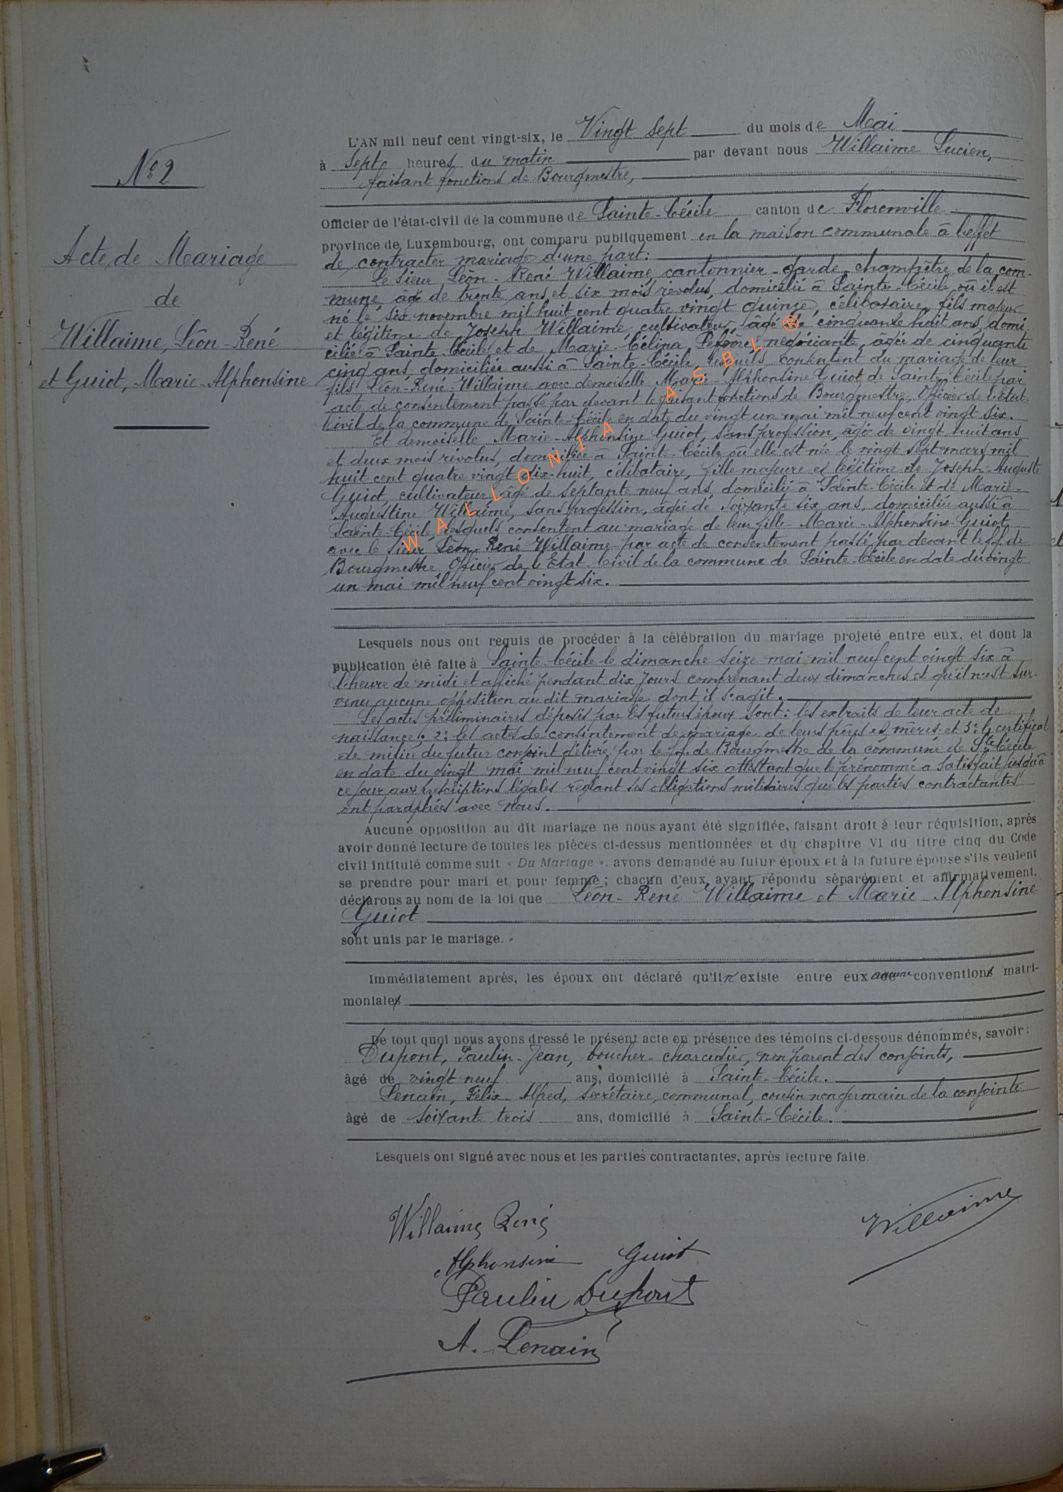 N° 2
Acte de Mariage
de
Willaime, Léon-René
et Guiot, Marie-Alphonsine
L'AN mil neuf cent vingt-six, le Vingt sept du mois de Mai
à sept heures du matin par devant nous Willaime Lucien,
faisant fonctions de Bourgmestre,
Officier de l'état-civil de la commune de Sainte-Cécile canton de Florenville
province de Luxembourg, ont comparu publiquement en la maison communale à l'effet
de contracter mariage d'une part:
Le sieur Léon-René Willaime, cantonnier-garde champêtre de la com-
mune, âgé de trente ans et six mois révolus, domicilié à Sainte-Cécile où il est
né le six novembre mil huit cent quatre vingt quinze, célibataire, fils majeur
et légitime de Joseph Willaime, cultivateur, âgé de cinquante huit ans, domi
cilié à Sainte Cécile et de Marie-Célina négociante, âgée de cinquante
cinq ans, domiciliée aussi à Sainte-Cécile, lesquels consentent du mariage de leur
fils Léon-René Willaime avec demoiselle Marie-Alphonsine Guiot de Sainte-Cécile par
acte de consentement passé par devant le faisant fonctions de Bourgmestre, Officier de l'Etat
Civil de la commune de Sainte-Cécile en date du vingt un mai mil neuf cent vingt six.
Et demoiselle Marie-Alphonsine Guiot, sans profession, âgée de vingt huit ans
et deux mois révolus, domiciliée à Sainte-Cécile où elle est née le vingt sept mars mil
huit cent quatre vingt dix-huit, célibataire, fille majeure et légitime de Joseph-Auguste
Guiot, cultivateur âgé de septante neuf ans, domicilié à Sainte-Cécile et de Marie-
Augustine Willaime, sans profession, âgée de soixante six ans, domiciliée aussi à
Sainte-Cécile, lesquels consentent au mariage de leur fille Marie-Alphonsine Guiot
avec le sieur Léon René Willaime par acte de consentement passé par devant le f.f. de
Bourgmestre, Officier de l'Etat-Civil de la commune de Sainte-Cécile en date du vingt
un mai mil neuf cent vingt six.
WALLONIA ASBL ©
Lesquels nous ont requis de procéder à la célébration du mariage projeté entre eux, et dont la
publication été faite à Sainte-Cécile le dimanche seize mai mil neuf cent vingt six à
l'heure de midi et affiché pendant dix jours comprenant deux dimanches et qu'il n'est sur-
venu aucune opposition au dit mariage dont il s'agit.
Les actes préliminaires déposés par les futurs époux sont: les extraits de leur acte de
naissance, 2: les actes de consentement de mariage de leurs pères et mères et 3: le certificat
de milice du futur conjoint délivré par le f.f. de Bourgmestre de la commune de Ste Cécile
en date du vingt mai mil neuf cent vingt six attestant que le prénommé a satisfait jusqu'à
ce jour aux prescriptions légales réglant ses obligations militaires que les parties contractantes
ont paraphées avec nous.
Aucune opposition au dit mariage ne nous ayant été signifiée, faisant droit à leur réquisition, après
avoir donné lecture de toutes les pièces ci-dessus mentionnées et du chapitre VI du titre cinq du Code
civil intitulé comme suit « Du Mariage », avons demandé au futur époux et à la future épouse s'ils veulent
se prendre pour mari et pour femme ; chacun d'eux ayant répondu séparément et affirmativement,
déclarons au nom de la loi que Léon-René Willaime et Marie-Alphonsine
Guiot
sont unis par le mariage.
Immédiatement après, les époux ont déclaré qu'il n'existe entre eux aucune conventions matri-
moniales
De tout quoi nous avons dressé le présent acte en présence des témoins ci-dessous dénommés, savoir :
Dupont, Paulin-Jean, boucher-charcutier, non parent des conjoints,
âgé de vingt neuf ans, domicilié à Sainte-Cécile.
Lenain, Félix-Alfred, Secrétaire, communal, cousin non germain de la conjointe
âgé de soixante trois ans, domicilié à Sainte-Cécile.
Lesquels ont signé avec nous et les parties contractantes, après lecture faite.
Willaime René
Willaime
Alphonsine Guiot
Paulin Dupont
A. Lenain